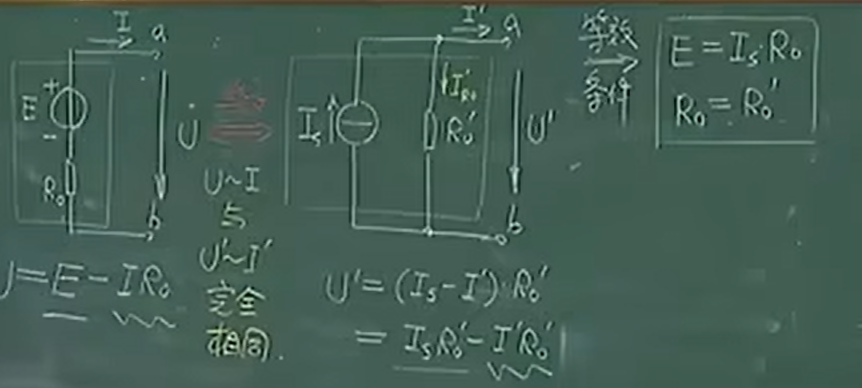 I a
+
E
-
R₀
b
U
U=E-IR₀
等效
U~I
与
U'~I'
完全
相同.
I' a
I'R₀
Is
R₀'
U'
b
U'=(Is-I')·R₀'
=IsR₀'-I'R₀'
等效
条件
E=Is·R₀
R₀=R₀'